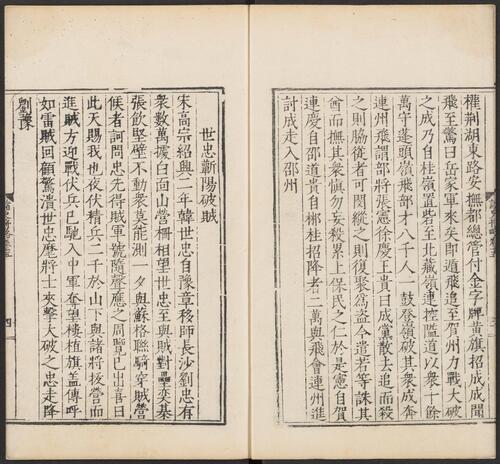 權荆湖東路安撫都總管付金字牌黃旗招成成聞
飛至驚曰岳家軍來矣即遁飛追至賀州力戰大破
之成乃自桂嶺置砦至北藏嶺連控隘道以衆十餘
萬守蓬頭嶺飛部才八千人一鼓登嶺破其衆成奔
連州飛謂部將張憲徐慶王貴曰成黨散去追而殺
之則脇從者可閔縱之則復聚爲盜今遣若等誅其
酋而撫其衆愼勿妄殺累上保民之仁於是憲自賀
連慶自邵道貴自郴桂招降者二萬與飛會連州進
討成走入邵州
世忠蘄陽破賊
宋高宗紹興二年韓世忠自豫章移師長沙劉忠有
衆數萬據白面山營柵相望世忠至與賊對壘奕棊
張飲堅壁不動衆莫能測一夕與蘇格聯騎穿賊營
候者訶問忠先得賊軍號隨聲應之周覽已出喜曰
此天賜我也夜伏精兵二千於山下與諸將拔營而
進賊方迎戰伏兵已馳入中軍奪望樓植旗蓋傳呼
如雷賊回顧驚潰世忠麾將士夾擊大破之忠走降
劉豫
四